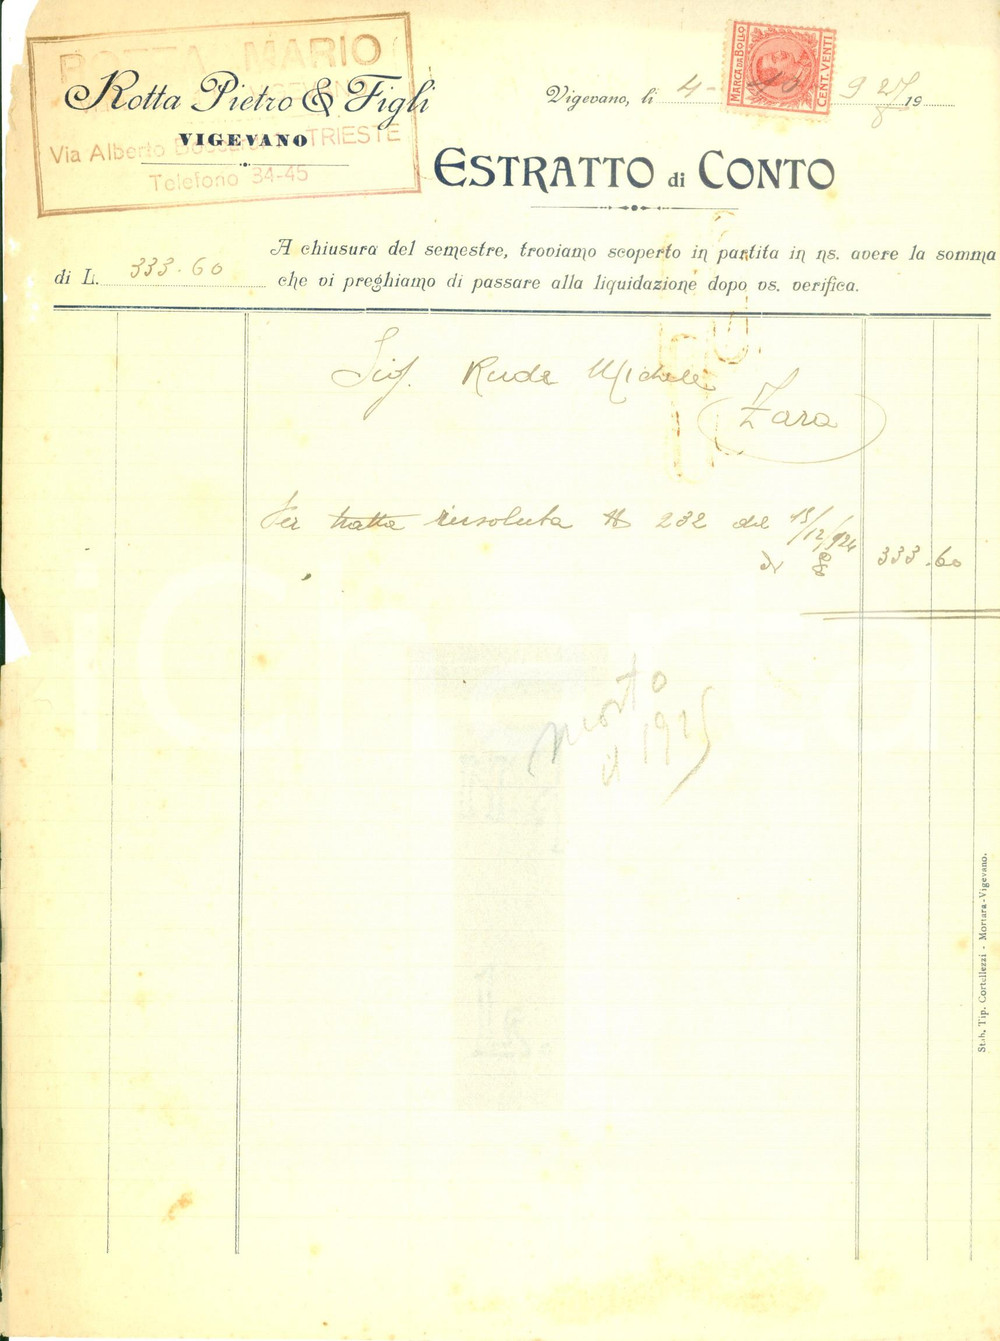 ROTTA MARIO
Rotta Pietro & Figli
VIGEVANO
Via Alberto TRIESTE
Telefono 34-45
Vigevano, li 4- 10 927 19
MARCA DA BOLLO
CENT. VENTI
ESTRATTO di CONTO
A chiusura del semestre, troviamo scoperto in partita in ns. avere la somma
di L. 333.60 che vi preghiamo di passare alla liquidazione dopo vs. verifica.
Sig. Rude Michele
Zara
Per tratta insoluta N 232 del 15/12/924
di £ 333.60
morto
il 1925
Stab. Tip. Cortellezzi - Mortara-Vigevano.